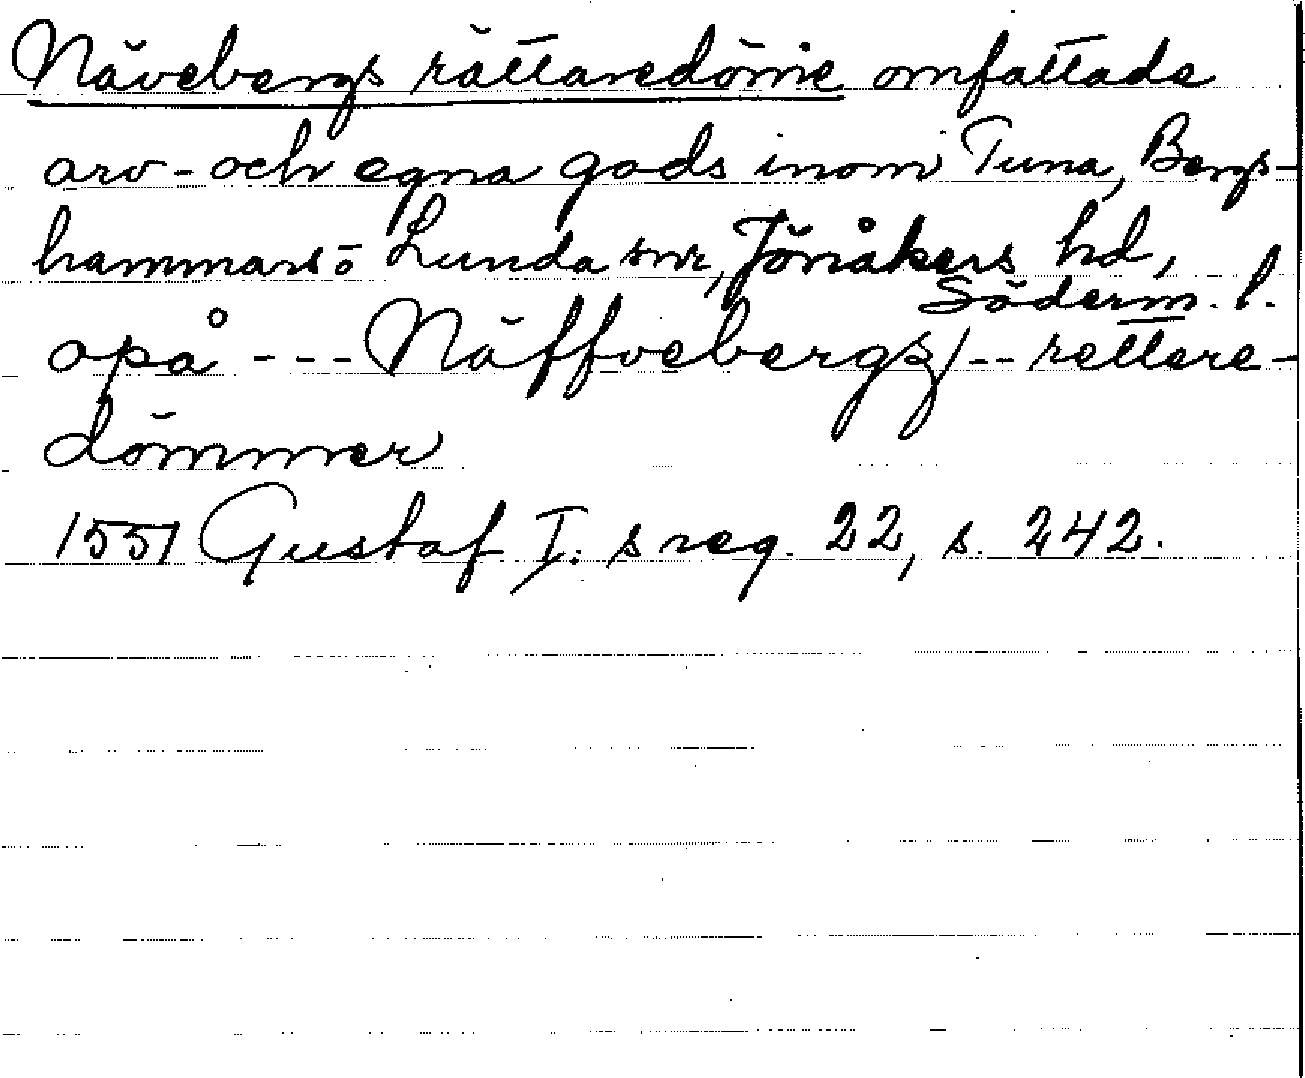 Nävebergs rättaredöme omfattade
arv- och egna gods inom Tuna, Bergs-
hammars o Lunda snr, Jönåkers hd,
Söderm. l.
opå --- Näffvebergz -- rettere-
dömmer
1551 Gustaf I:s reg. 22, s. 242.